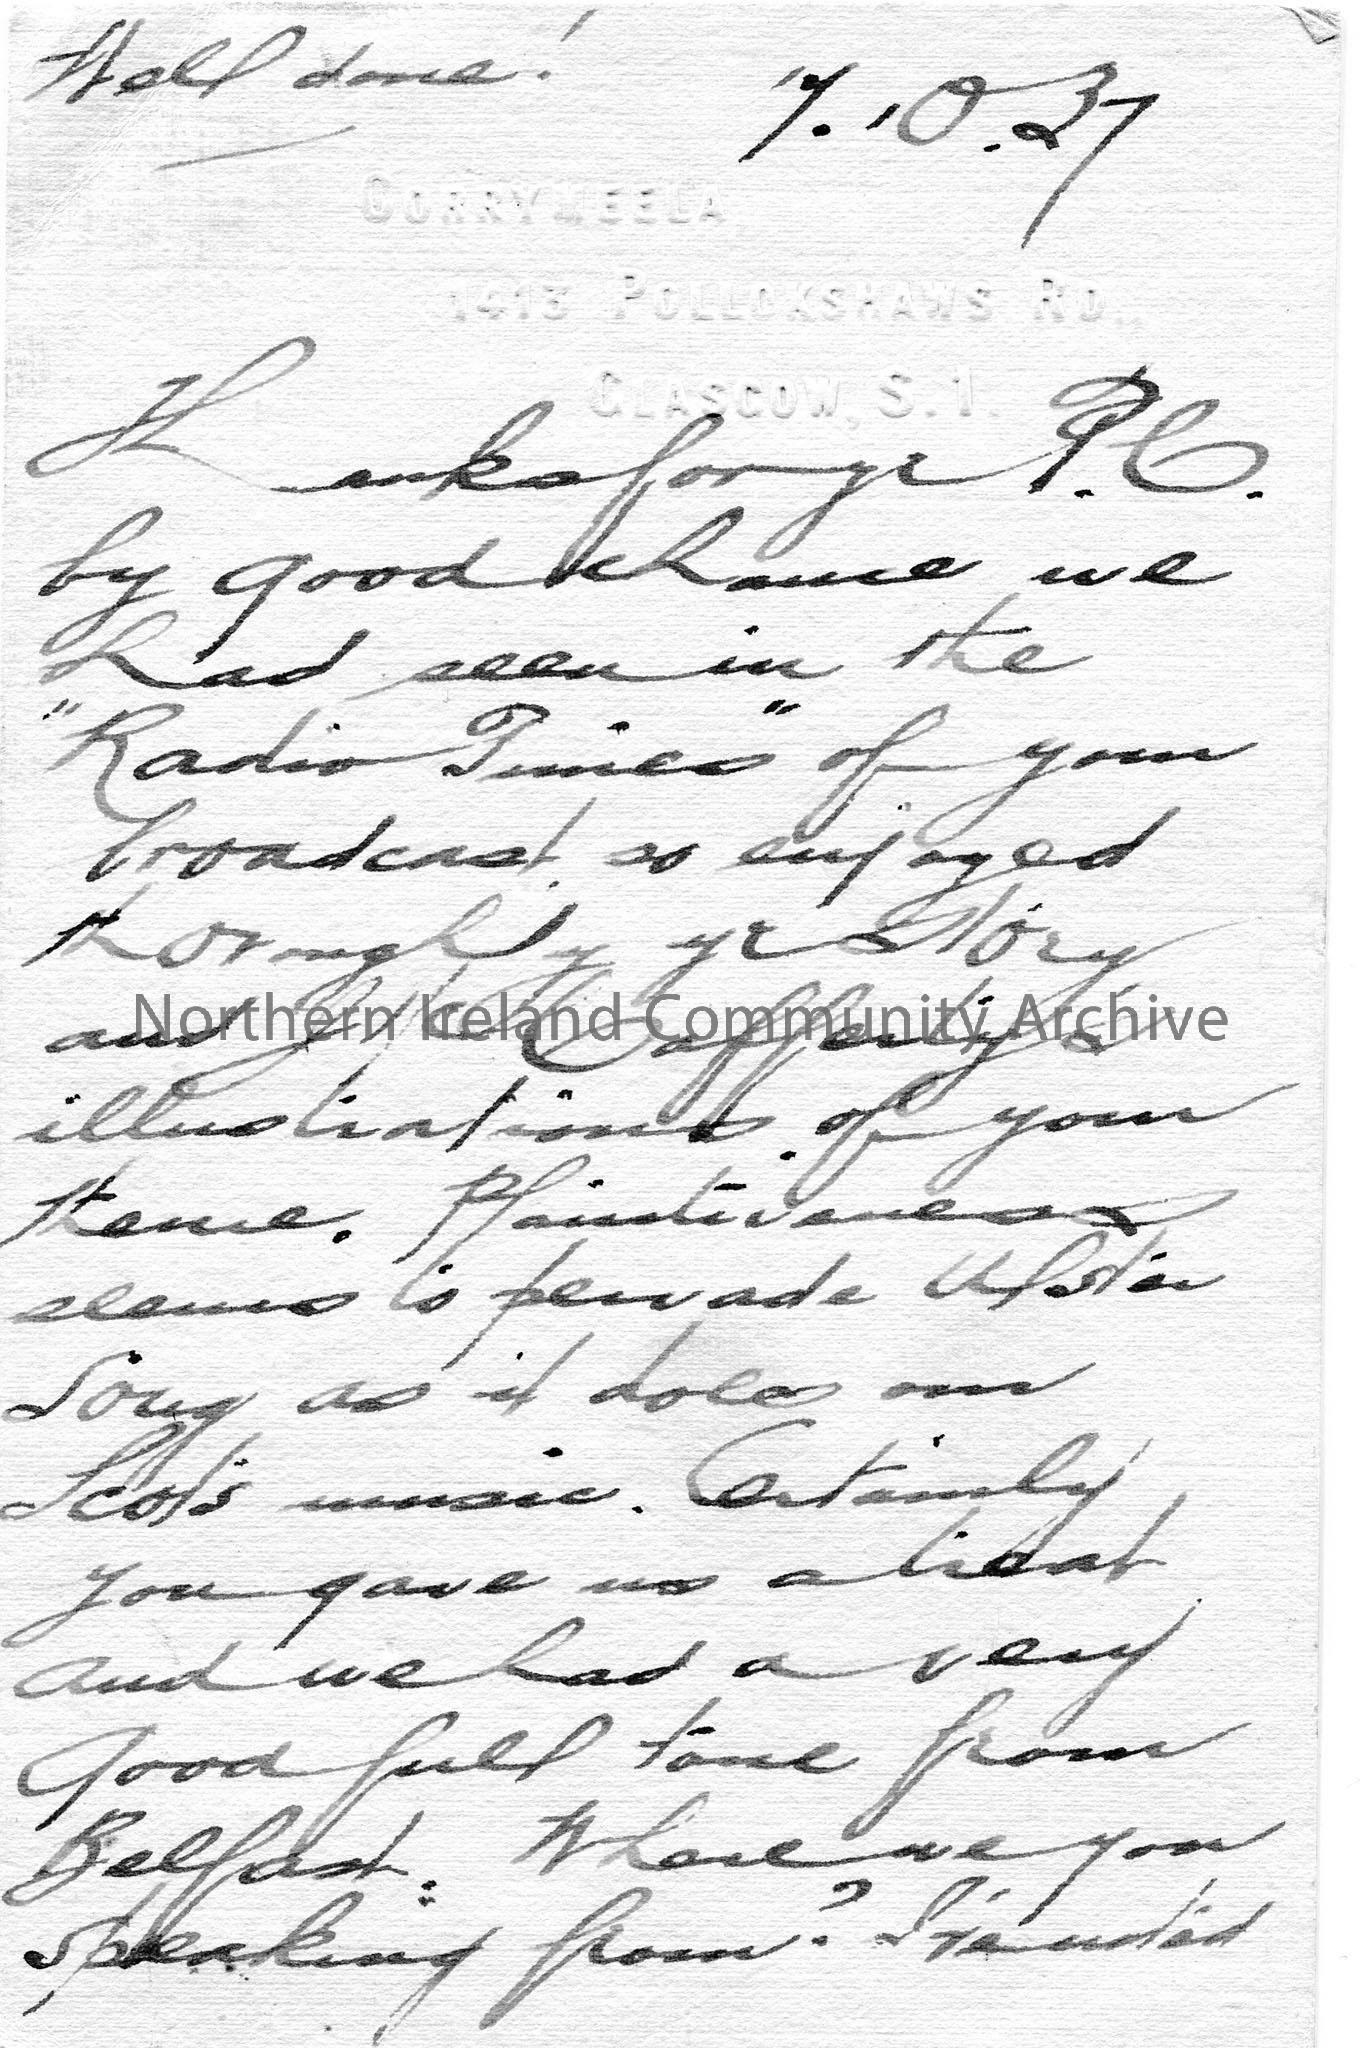 Well done!
7.10.27
CORRYMEELA
1413 POLLOKSHAWS RD.,
GLASGOW, S.1.
Thanks for yr P.C.
by good chance we
had seen in the
"Radio Times" of your
broadcast so enjoyed
thoroughly yr story
and Mr Cafferty's
illustrations of your
theme. Plaintiveness
seems to pervade Ulster
Song as it does our
Scots music. Certainly
you gave us a treat
and we had a very
Good full tone from
Belfast. Where were you
speaking from?
Northern Ireland Community Archive